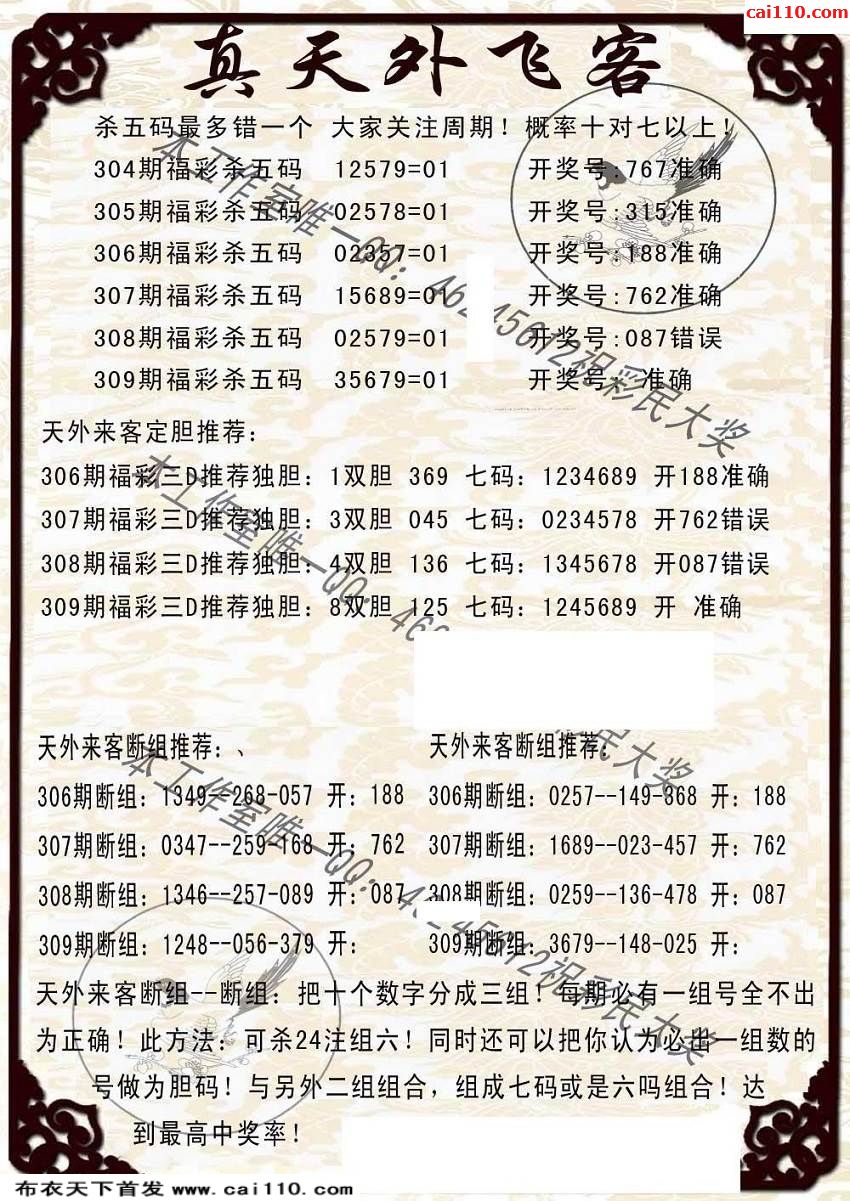 cai110.com
真天外飞客
杀五码最多错一个 大家关注周期！概率十对七以上！
304期福彩杀五码 12579=01 开奖号:767准确
305期福彩杀五码 02578=01 开奖号:315准确
306期福彩杀五码 02357=01 开奖号:188准确
307期福彩杀五码 15689=01 开奖号:762准确
308期福彩杀五码 02579=01 开奖号:087错误
309期福彩杀五码 35679=01 开奖号: 准确
天外来客定胆推荐：
306期福彩三D推荐独胆：1双胆 369 七码：1234689 开188准确
307期福彩三D推荐独胆：3双胆 045 七码：0234578 开762错误
308期福彩三D推荐独胆：4双胆 136 七码：1345678 开087错误
309期福彩三D推荐独胆：8双胆 125 七码：1245689 开 准确
天外来客断组推荐：、
306期断组：1349--268-057 开：188
307期断组：0347--259-168 开：762
308期断组：1346--257-089 开：087
309期断组：1248--056-379 开：
天外来客断组推荐：
306期断组：0257--149-368 开：188
307期断组：1689--023-457 开：762
308期断组：0259--136-478 开：087
309期断组：3679--148-025 开：
天外来客断组--断组：把十个数字分成三组！每期必有一组号全不出
为正确！此方法：可杀24注组六！同时还可以把你认为必出一组数的
号做为胆码！与另外二组组合，组成七码或是六吗组合！达
到最高中奖率！
布衣天下首发 www.cai110.com